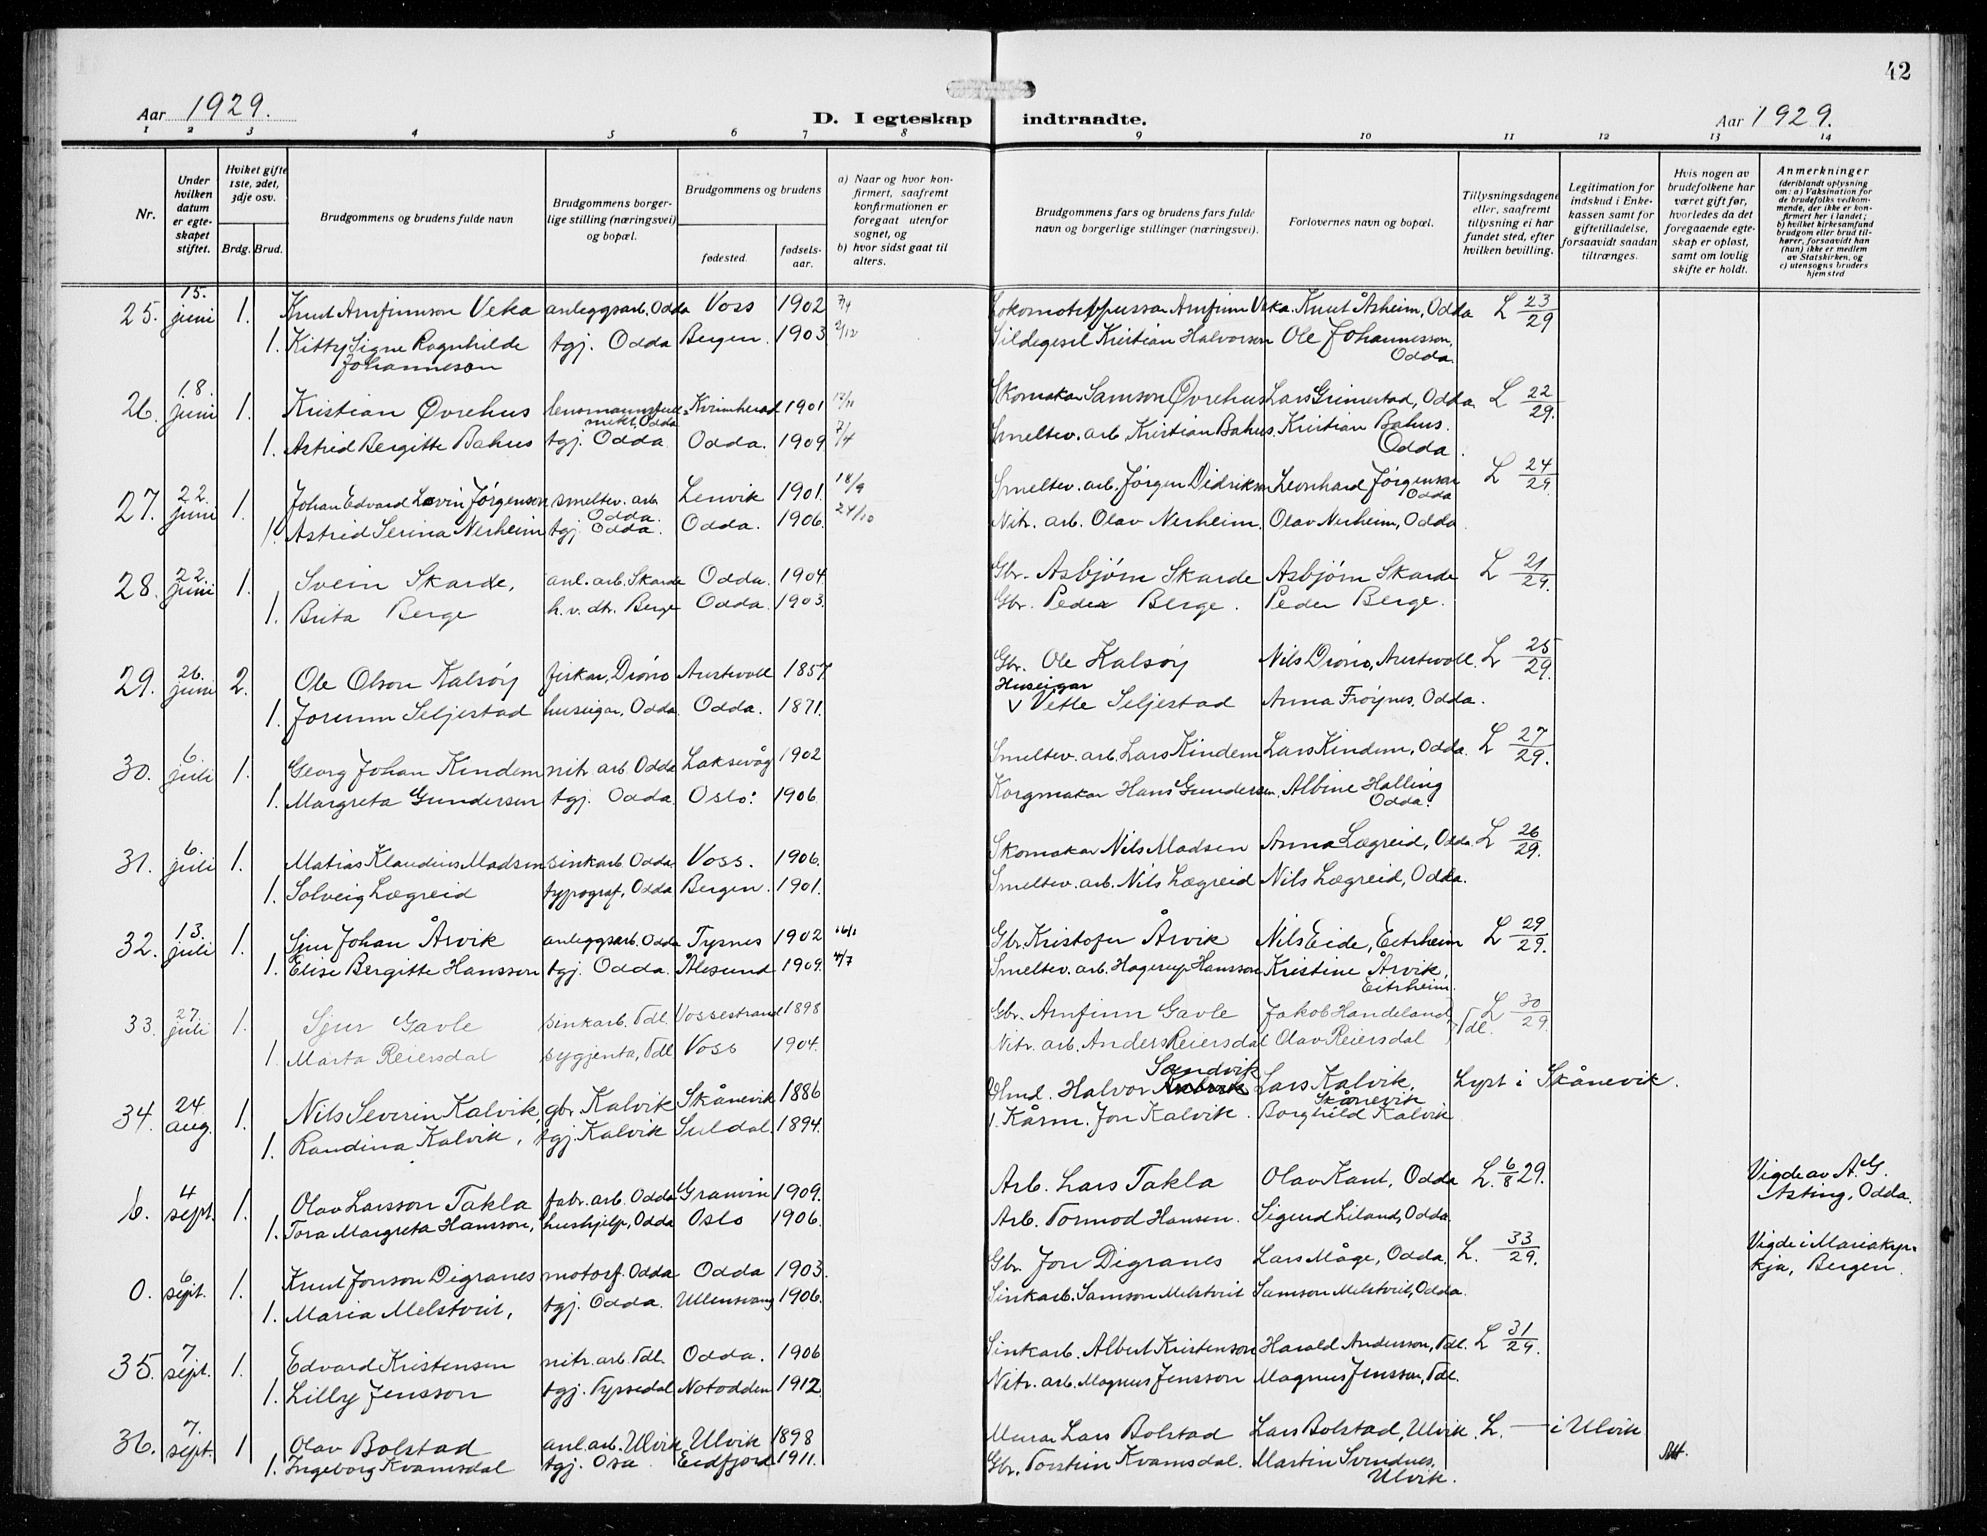 42
Aar 1929. D. I egteskap indtraadte. Aar 1929.
1 2 3 4 5 6 7 8 9 10 11 12 13 14
Nr.
Under hvilken datum er egteskapet stiftet.
Hviket gifte 1ste, 2det, 3dje osv.
Brdg. Brud.
Brudgommens og brudens fulde navn
Brudgommens borgerlige stilling (næringsvei) og bopæl.
Brudgommens og brudens
fødested. fødselsaar.
a) Naar og hvor konfirmert, saafremt konfirmationen er foregaat utenfor sognet, og
b) hvor sidst gaat til alters.
Brudgommens fars og brudens fars fulde navn og borgerlige stillinger (næringsvei).
Forlovernes navn og bopæl.
Tillysningsdagene eller, saafremt tillysning ei har fundet sted, efter hvilken bevilling.
Legitimation for indskud i Enkekassen samt for giftetilladelse, forsaavidt saadan tiltrænges.
Hvis nogen av brudefolkene har været gift før, hvorledes da det foregaaende egteskap er opløst, samt om lovlig skifte er holdt.
Anmerkninger (deriblandt oplysning om: a) Vaksination for de brudefolks vedkommende, der ikke er konfirmert her i landet; b) hvilket kirkesamfund brudgom eller brud tilhører, forsaavidt han (hun) ikke er medlem av Statskirken, og c) utensogns bruders hjemsted
25. 15. juni 1. Knut Arnfinnson Veka anleggsarb. Odda Voss 1902 7/4 Arnfinn Veka. Knut Åsheim, Odda L 23/29
1. Kitty Signe Ragnhilde Johanneson tgj. Odda Bergen. 1903 2/12 Kristian Halvorson Ole Johannesson, Odda.
26. 18. juni 1. Kristian Øvrehus Odda Kvinnherad 1901 Skomakar Samson Øvrehus Lars Grimestad, Odda L 22/29.
1. Astrid Bergitte Bahus tgj. Odda Odda. 1909 7/4 Smeltev. arb. Kristian Bahus. Kristian Bahus. Odda.
27. 22. juni 1. Johan Edvard Lovin Jørgenson smeltev. arb. Odda. Lenvik 1901. 18/9 Smeltev. arb. Jørgen Didrikson Leonhard Jørgenson Odda L 24/29.
1. Astrid Serina Nerheim tgj. Odda. Odda. 1906. 24/10 Nitr. arb. Olav Nerheim. Olav Nerheim, Odda
28. 22. juni 1. Svein Skarde, anl. arb. Skarde Odda. 1904 Gbr. Asbjørn Skarde Asbjørn Skarde L 21/29.
1. Brita Berge h. v. dtr. Berge Odda. 1903. Gbr. Peder Berge. Peder Berge.
29. 26. juni 2. Ole Olson Kalsøy fiskar, Drøno Austevoll 1857 Gbr. Ole Kalsøy Nils Drøno, Austevoll. L 25/29.
1. Jorunn Seljestad huseigar, Odda Odda. 1871. Huseigar Vetle Seljestad Anna Frøynes, Odda.
30. 6. juli 1. Georg Johan Kindem nitr. arb. Odda Laksevåg 1902 Smeltev. arb. Lars Kindem Lars Kindem, Odda. L 27/29.
1. Margreta Gundersen tgj. Odda Oslo. 1906 Korgmakar Hans Gundersen, Albine Halling Odda.
31. 6. juli 1. Matias Klaudius Madsen sinkarb. Odda Voss. 1906. Skomakar Nils Madsen Anna Lægreid, Odda L 26/29.
1. Solveig Lægreid typograf, Odda Bergen. 1901. Smeltev. arb. Nils Lægreid Nils Lægreid, Odda.
32. 13. juli 1. Sjur Johan Årvik anleggsarb. Odda Tysnes 1902 Gbr. Kristofer Årvik Nils Eide, Eitrheim L 29/29.
1. Elise Bergitte Hansson tgj. Odda. Ålesund 1909. 4/7 Smeltev. arb. Hagerup Hansson Kristine Årvik, Eitrheim.
33. 27. juli 1. Sjur Gavle sinkarb. Tdl. Vossestrand 1898 Gbr. Arnfinn Gavle Jakob Handeland L 30/29
1. Marta Reiersdal sygjenta, Tdl Voss 1904. Nitr. arb. Anders Reiersdal Olav Reiersdal Tdl.
34. 24 aug. 1. Nils Severin Kalvik, gbr. Kalvik Skånevik 1886 Halvor Sandvik Lars Kalvik, Skånevik Lyst i Skånevik.
1. Randina Kalvik, tgj. Kalvik Suldal. 1894. Jon Kalvik. Borghild Kalvik
6. 4 sept. 1. Olav Larsson Takla fabr. arb. Odda Granvin 1909. Arb. Lars Takla Olav Kant, Odda L. 6/8 29. Vigde av A. G. Asting, Odda.
1. Tora Margreta Hansson, hushjelp, Odda Oslo 1906. Arb. Tormod Hansen. Sigurd Liland, Odda.
0. 6 sept. 1. Knut Jonson Digranes motorf. Odda Odda 1903. Gbr. Jon Digranes Lars Måge, Odda, L. 33/29. Vigde i Mariakyrkja, Bergen.
1. Maria Melstveit, tgj. Odda. Ullensvang 1906. Sinkarb. Samson Melstveit Samson Melstveit, Odda.
35. 7 sept. 1. Edvard Kristensen nitr. arb. Tdl. Odda. 1906 Sinkarb. Albert Kristenson Harald Anderson, Tdl. L 31/29.
1. Lilly Jensson tgj. Tyssedal Notodden 1912. Nitr. arb. Magnus Jensson Magnus Jensson, Tdl.
36. 7. sept. 1 Olav Bolstad anl. arb. Ulvik Ulvik 1898 Murar Lars Bolstad Lars Bolstad, Ulvik. L. — i Ulvik
1. Ingeborg Kvamsdal tgj. Osa Eidfjord 1911. Gbr. Torstein Kvamsdal. Martin Svindnes, Ulvik.